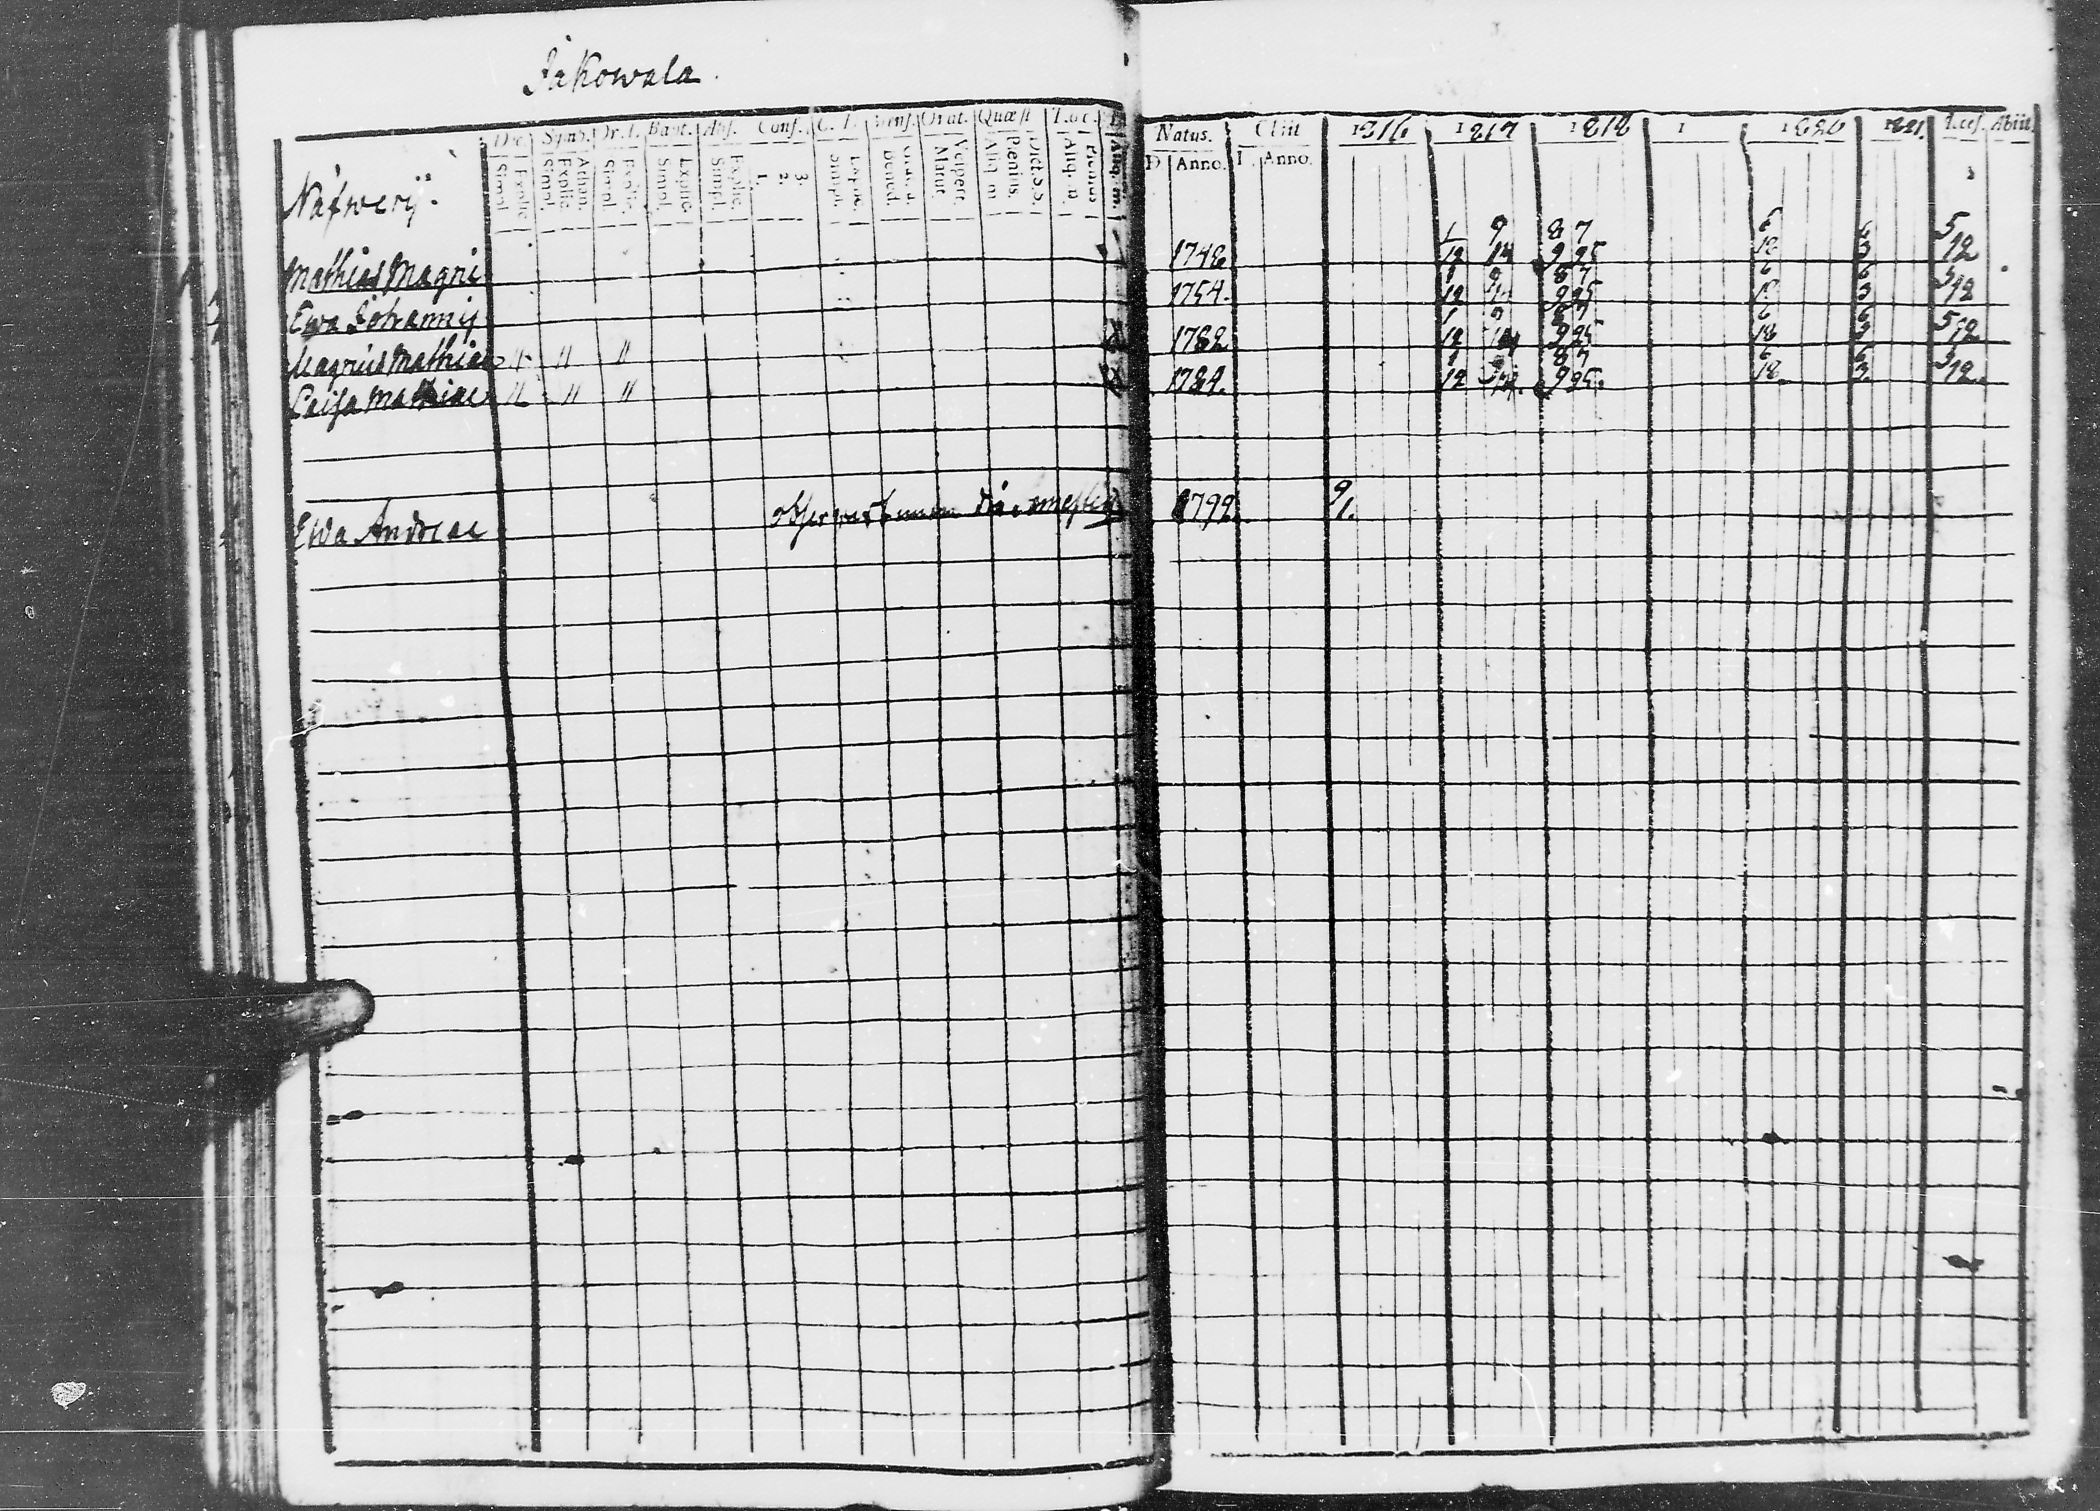 Jakowala.
Dec. Symb. Or. D. Bapt. Abs. Conf. C. D. Mens. Orat. Quæst. Loc. Natus. Obiit 1816 1817 1818 1 1820 1821. Acces. Abiit.
Simpl. Explic. Simpl. Explic. Athan. Simpl. Explic. Simpl. Explic. Simpl. Explic. 1. 2. 3. Simpl. Explic. Bened. Matut. Vesper. Aliq. m. Plenius. Dict. S. S. Aliq. m. Plenius. Aliq. m. D. Anno. Anno.
Näfwerij.
Mathias Magni 1748 1/12 9/14 8/9 7/25 6/18 6/3 5/12
Ewa Johannis 1754. 1/12 9/14 8/9 7/25 6/18 6/3 5/12
Magnus Mathiae " " " 1782 1/12 9/14 8/9 7/25 6/18 6/3 5/12
Caisa Mathiae " " " 1784. 1/12 9/14. 8/9 7/25. 6/18. 6/3. 5/12.
Ewa Andreae 1792. 9/1.